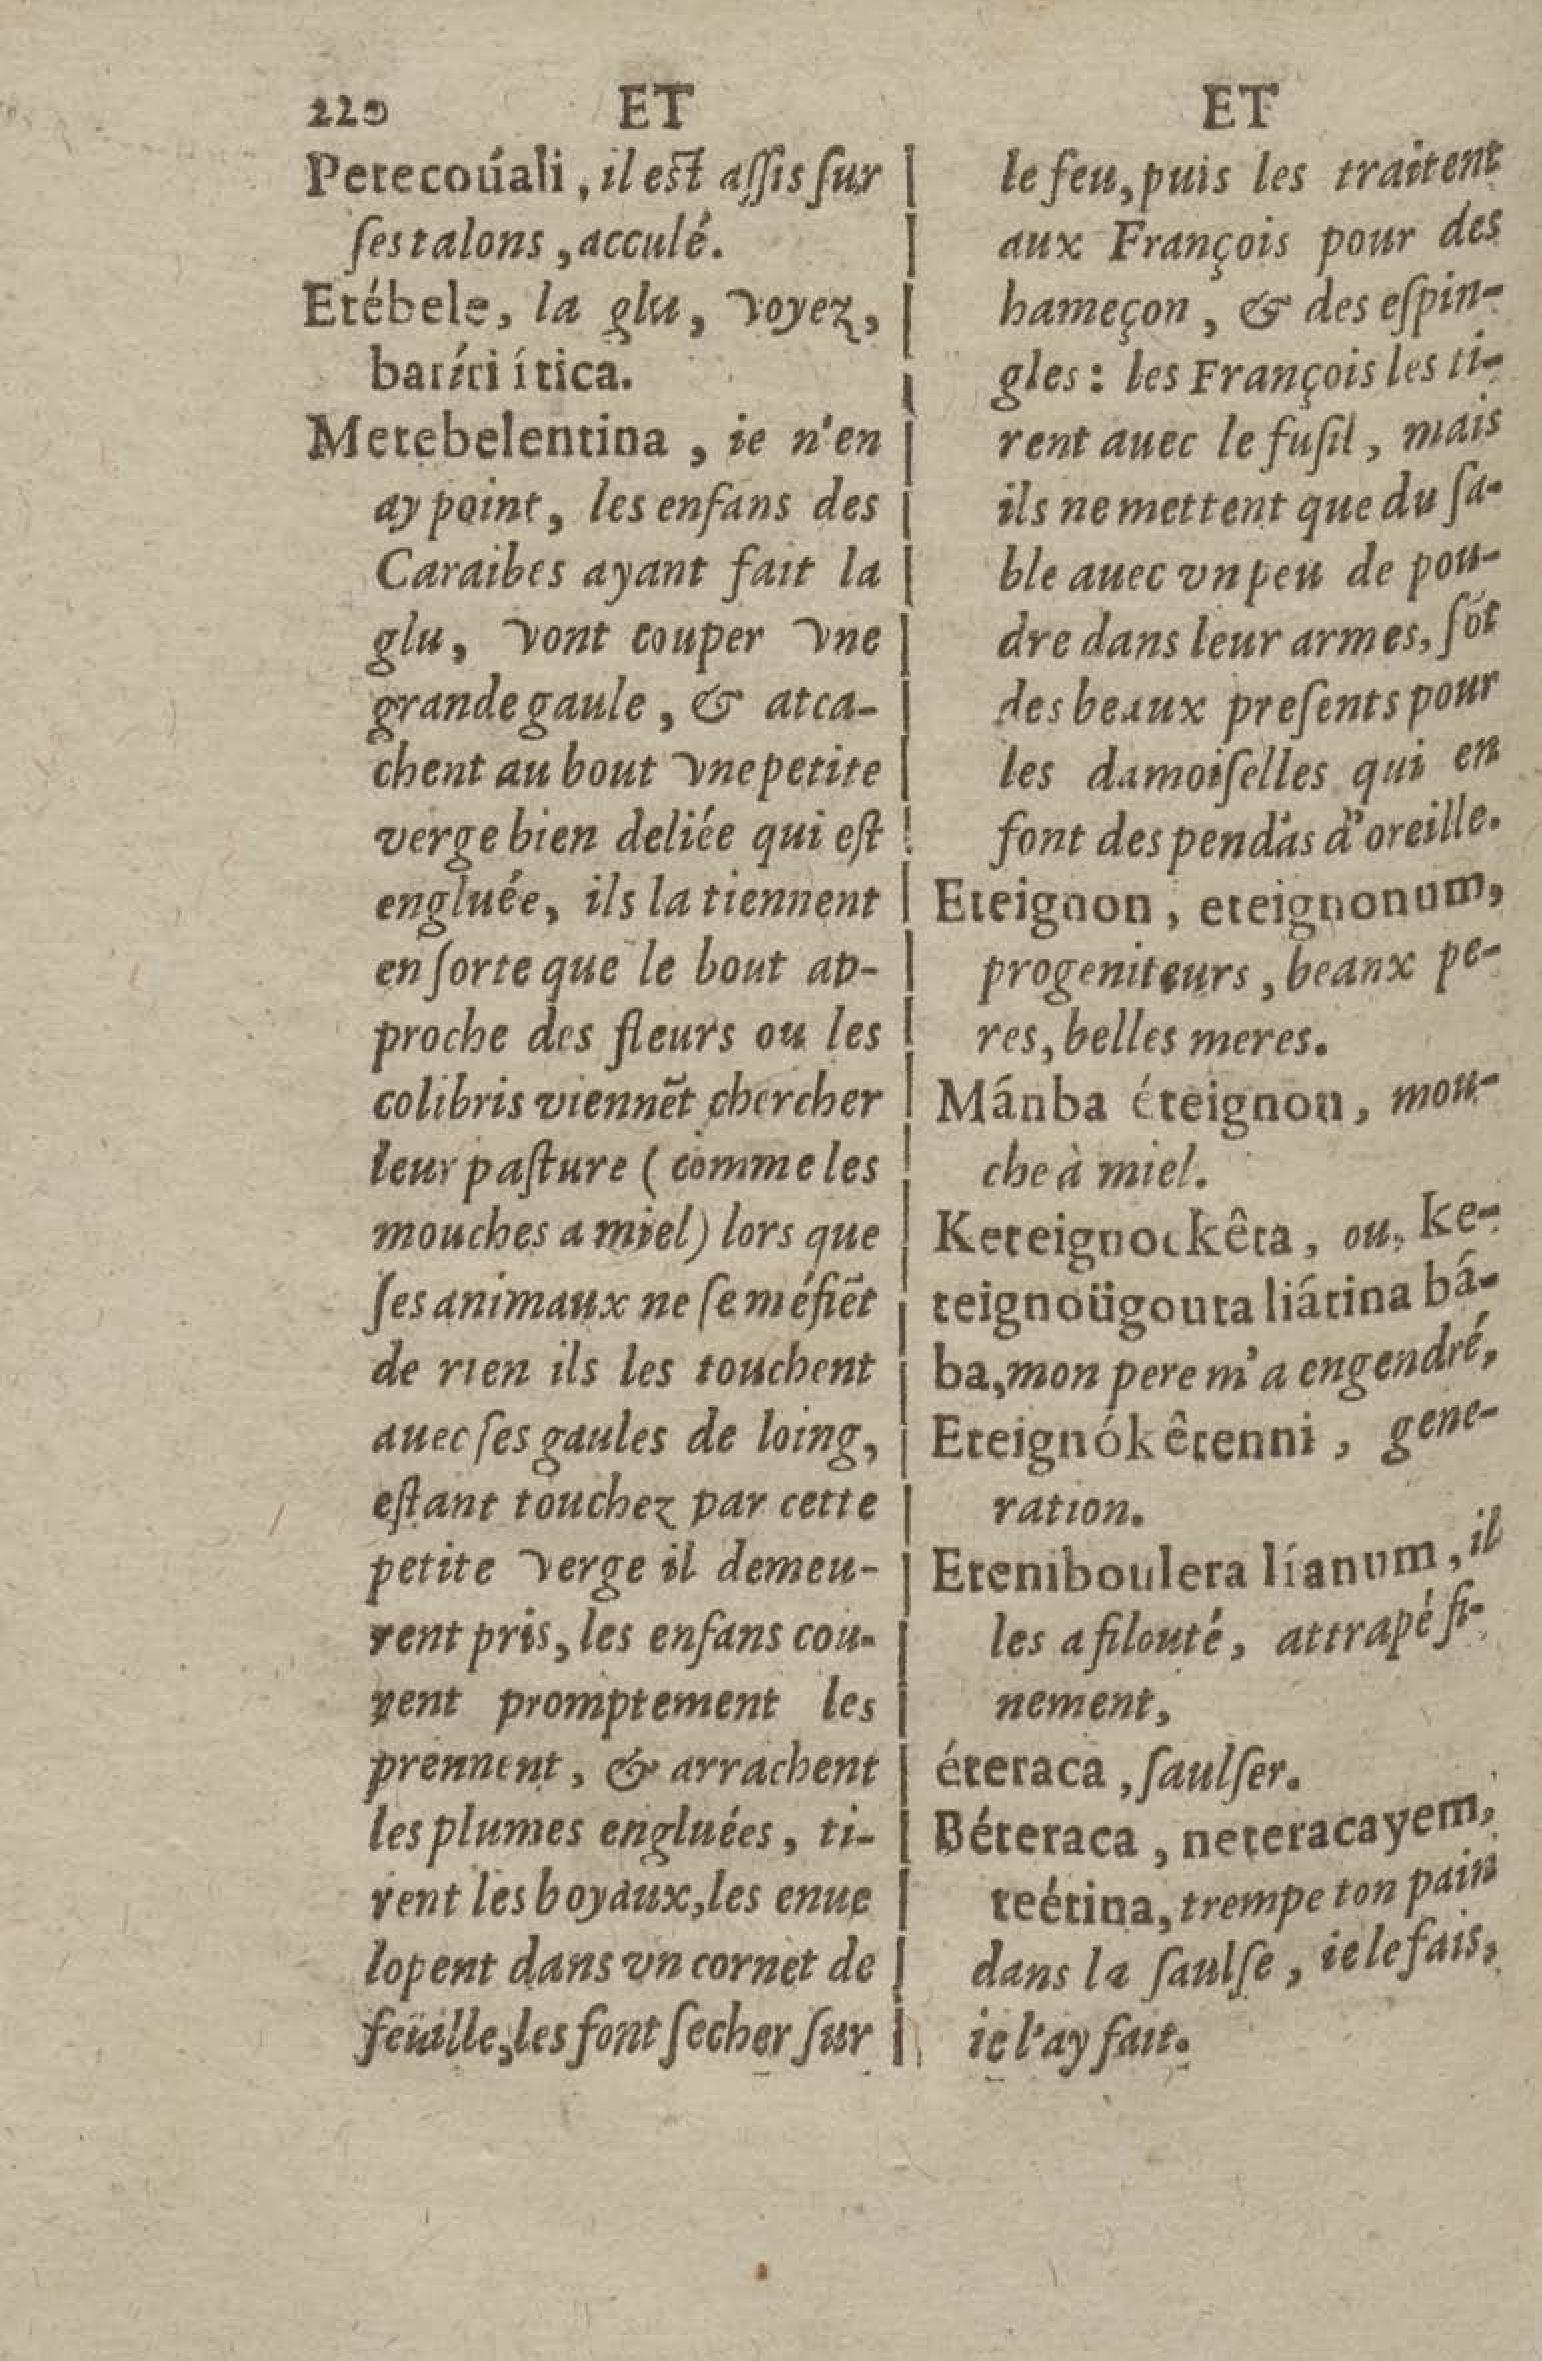 220 ET ET
Petecoúali, il est aſſis ſur
ſes talons, acculé.
Etébele, la glu, voyez,
baríri ítica.
Metebelentina, ie n'en
ay point, les enfans des
Caraibes ayant fait la
glu, vont couper vne
grande gaule, & atta-
chent au bout vne petite
verge bien deliée qui eſt
engluée, ils la tiennent
en ſorte que le bout ap-
proche des fleurs ou les
colibris viennẽt chercher
leur paſture (comme les
mouches a miel) lors que
ſes animaux ne ſe méfiẽt
de rien ils les touchent
auec ſes gaules de loing,
eſtant touchez par cette
petite verge il demeu-
rent pris, les enfans cou-
rent promptement les
prennent, & arrachent
les plumes engluées, ti-
rent les boyaux, les enue
lopent dans vn cornet de
feüille, les font ſecher ſur
le feu, puis les traitent
aux François pour des
hameçon, & des eſpin-
gles: les François les ti-
rent auec le fuſil, mais
ils ne mettent que du ſa-
ble auec vn peu de pou-
dre dans leur armes, ſõt
des beaux preſents pour
les damoiſelles qui en
font des pendãs d'oreille.
Eteignon, eteignonum,
progeniteurs, beaux pe-
res, belles meres.
Mánba éteignon, mou-
che à miel.
Keteignockêta, ou, ke-
teignoügouta liátina bá-
ba, mon pere m'a engendré,
Eteignókêtenni, gene-
ration.
Eteniboulera líanum, il
les a filouté, attrapé fi-
nement,
éteraca, ſaulſer.
Béteraca, neteracayem,
teétina, trempe ton pain
dans la ſaulſe, ie le fais,
ie l'ay fait.